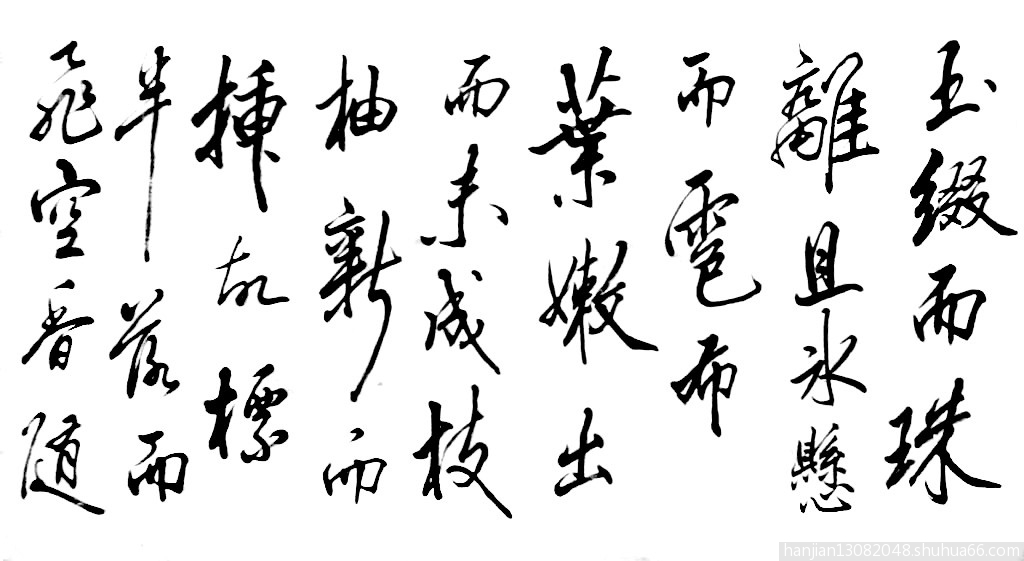 玉缀而珠
離且氷懸
而雹布
葉嫩出
而未成枝
抽新而
挿故標
半落而
飛空香随
hanjian13082048.shuhua66.com